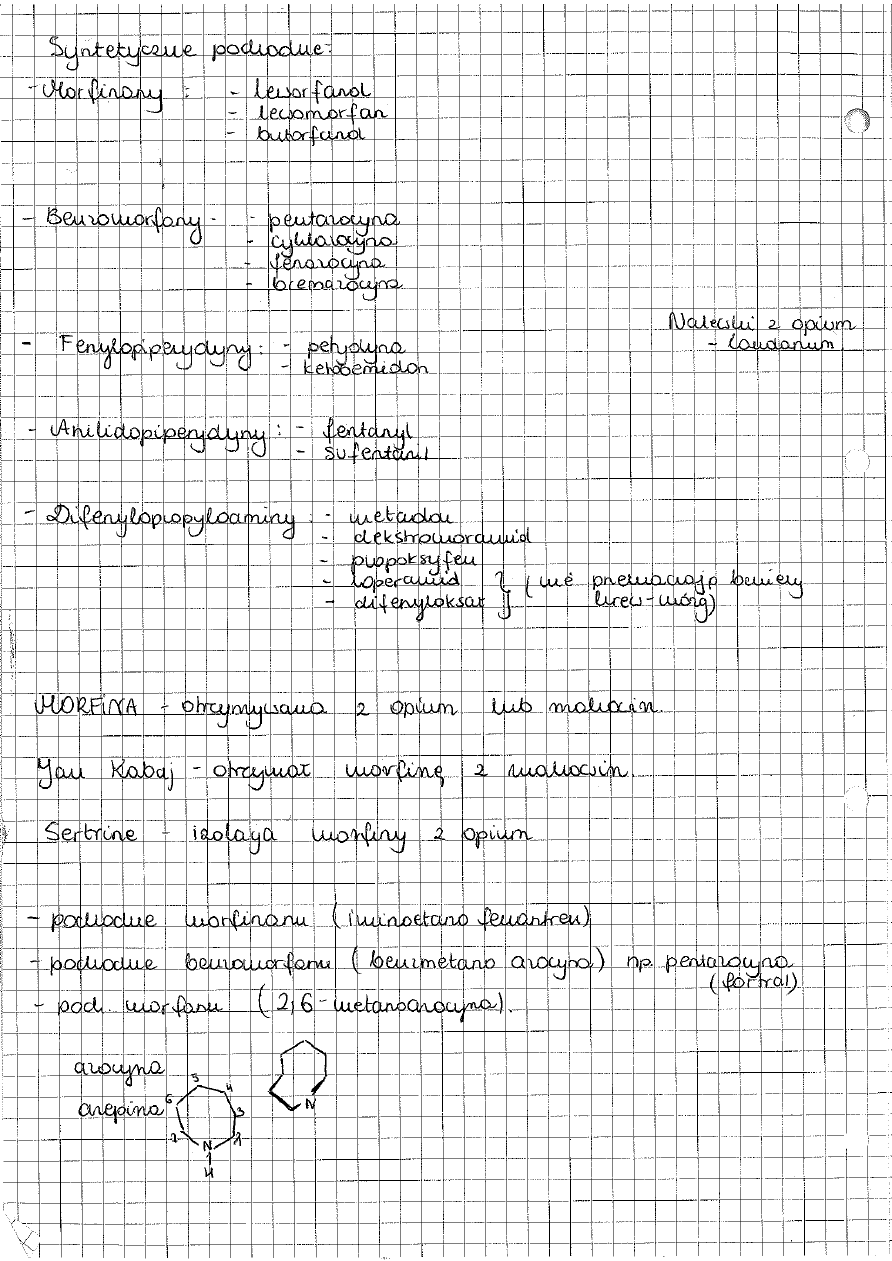 Syntetyczne pochodne:
- Morfinany : - leworfanol
- lewomorfan
- butorfanol
- Benzomorfany - - pentazocyna
- cyklazocyna
- fenazocyna
- bremazocyna
Nalewki z opium
- laudanum
- Fenylopiperydyny : - petydyna
- ketobemidon
- Anilidopiperydyny : - fentanyl
- sufentanil
- Difenylopropyloaminy : - metadon
- dekstromoramid
- propoksyfen
- loperamid } (nie przekraczają bariery
- difenyloksat } krew-mózg)
MORFINA - otrzymywana z opium lub makowin.
Jan Kabaj - otrzymał morfinę z makowin.
Sertrine - izolacja morfiny z opium
- pochodne morfinanu (iminoetano fenantren)
- pochodne benzomorfanu (benzmetano azocyna) np. pentazocyna
(fortral)
- poch. morfanu (2,6-metanoazocyna).
azocyna
azepina
5
4
6
3
7
2
N
H
N